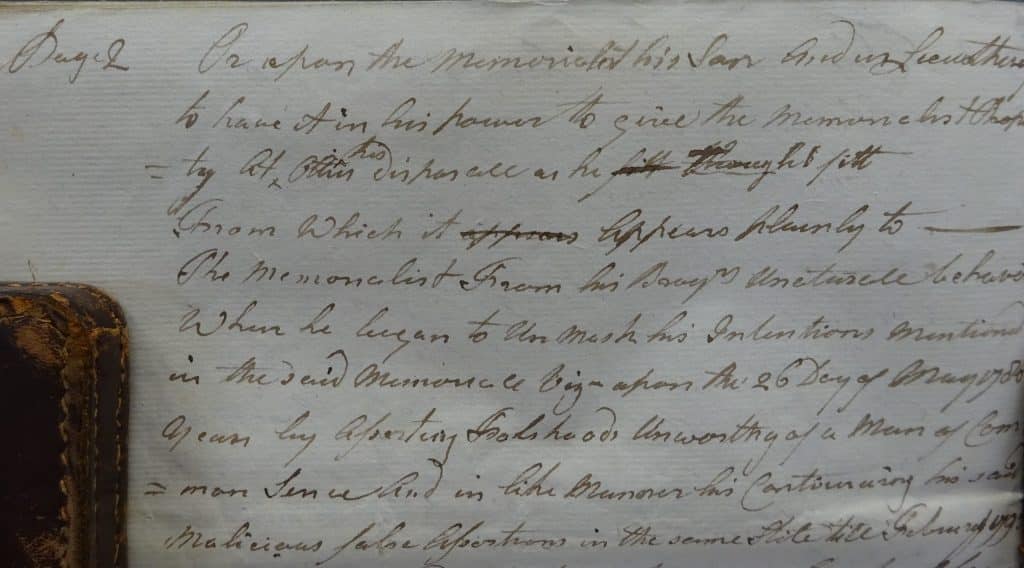 Page 2 Or apon the Memorialist his Son And in Lieu ther
to have it in his power to give the Memorialist Prop
= ty At his disposall as he felt thought fitt
From Which it appears Appears plainly to
The Memorialist From his Unaturall behavi
When he began to Un Mask his Intentions Mentiond
in the said Memoriall Viz apon the 26 Day of May 178
years by Aserting Falshoods Unworthy of a Man of Com
= mon Sence And in like Manner his Continuing his said
Malicious false Asertions in the same Stile till